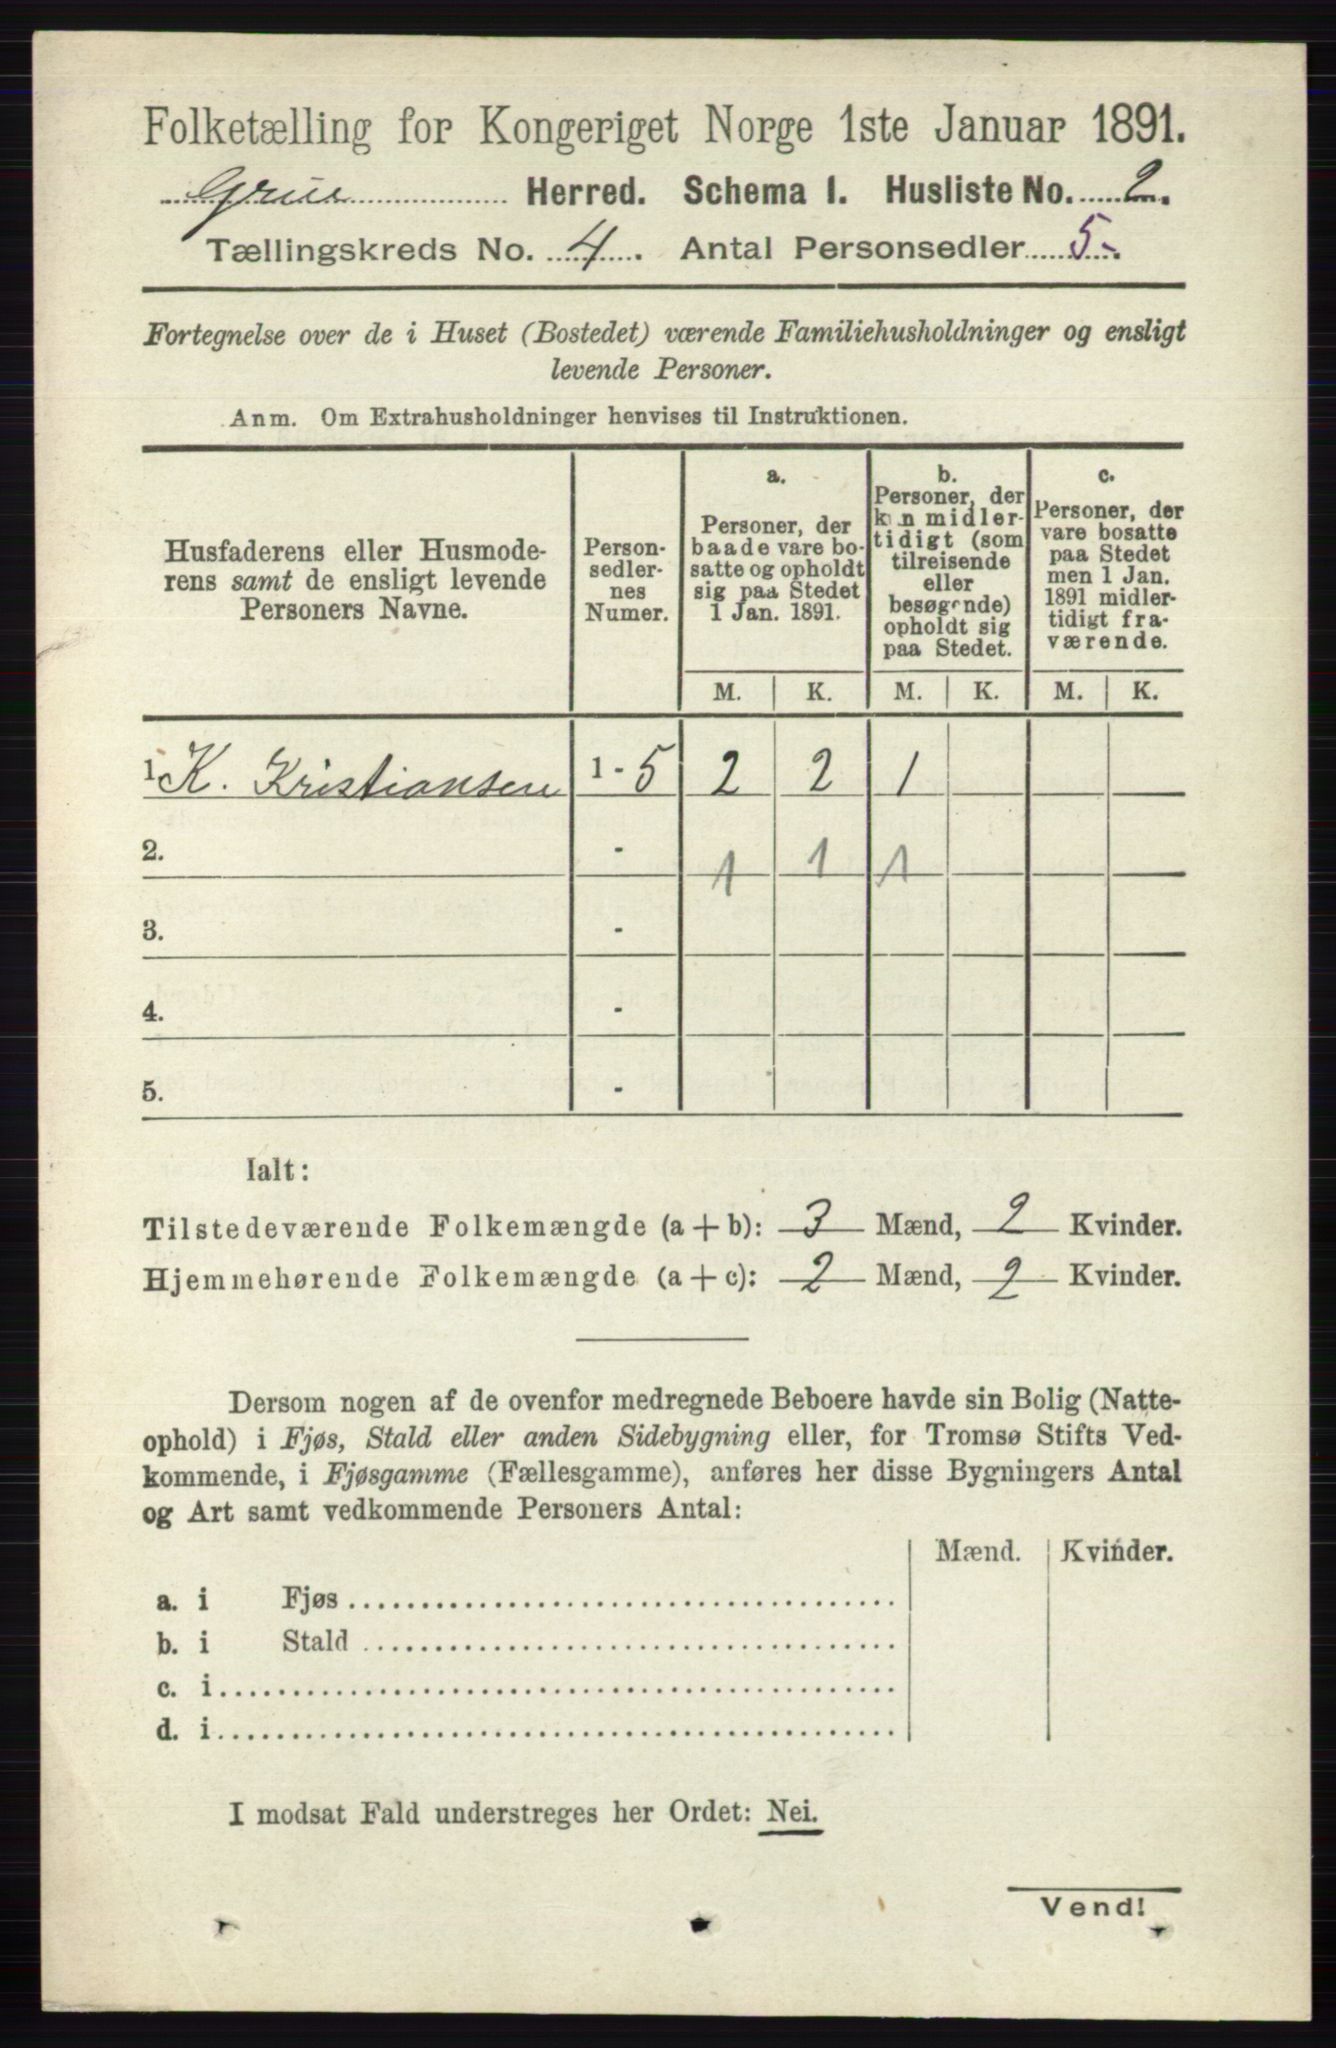 Folketælling for Kongeriget Norge 1ste Januar 1891.
Grue Herred. Schema I. Husliste No. 2.
Tællingskreds No. 4. Antal Personsedler 5-.
Fortegnelse over de i Huset (Bostedet) værende Familiehusholdninger og ensligt
levende Personer.
Anm. Om Extrahusholdninger henvises til Instruktionen.
Husfaderens eller Husmode-
rens samt de ensligt levende
Personers Navne.
Person-
sedler-
nes
Numer.
a.
Personer, der
baade vare bo-
satte og opholdt
sig paa Stedet
1 Jan. 1891.
b.
Personer, der
kun midler-
tidigt (som
tilreisende
eller
besøgende)
opholdt sig
paa Stedet.
c.
Personer, der
vare bosatte
paa Stedet
men 1 Jan.
1891 midler-
tidigt fra-
værende.
M. K. M. K. M. K.
1 K. Kristiansen 1 - 5 2 2 1
2. - 1 1 1
3. -
4. -
5. -
Ialt:
Tilstedeværende Folkemængde (a + b): 3 Mænd, 2 Kvinder.
Hjemmehørende Folkemængde (a + c): 2 Mænd, 2 Kvinder.
Dersom nogen af de ovenfor medregnede Beboere havde sin Bolig (Natte-
ophold) i Fjøs, Stald eller anden Sidebygning eller, for Tromsø Stifts Ved-
kommende, i Fjøsgamme (Fællesgamme), anføres her disse Bygningers Antal
og Art samt vedkommende Personers Antal:
Mænd. Kvinder.
a. i Fjøs
b. i Stald
c. i
d. i
I modsat Fald understreges her Ordet: Nei.
Vend!